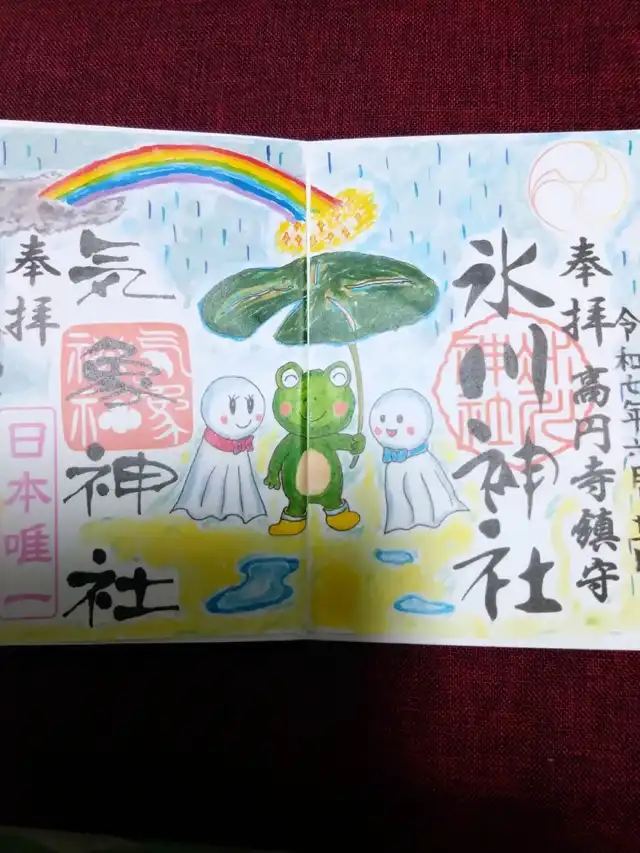 令和
奉拝 高円寺鎮守
氷川神社
氷川神社
気象神社
気象神社
奉拝
日本唯一